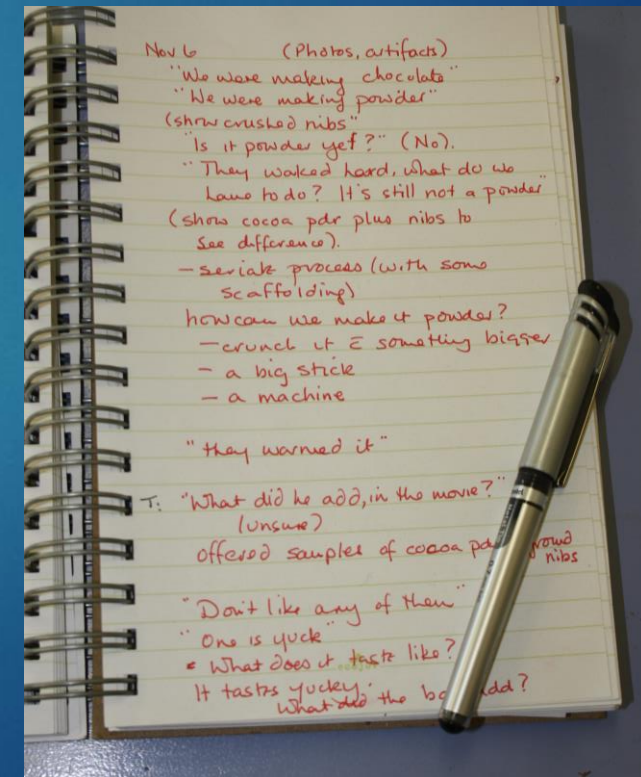 Nov 6 (Photos, artifacts)
"We were making chocolate"
"We were making powder"
(show crushed nibs"
"Is it powder yet?" (No).
"They waked hard, what do we
have to do? It's still not a powder"
(show cocoa pdr plus nibs to
see difference).
- seriate process (with some
scaffolding)
how can we make it powder?
- crunch it c̄ something bigger
- a big stick
- a machine
"they warmed it"
T: "What did he add, in the movie?"
(unsure)
offered samples of cocoa ground
nibs
"Don't like any of them"
"One is yuck"
"What does it taste like?
It tastes yucky.
What did the add?